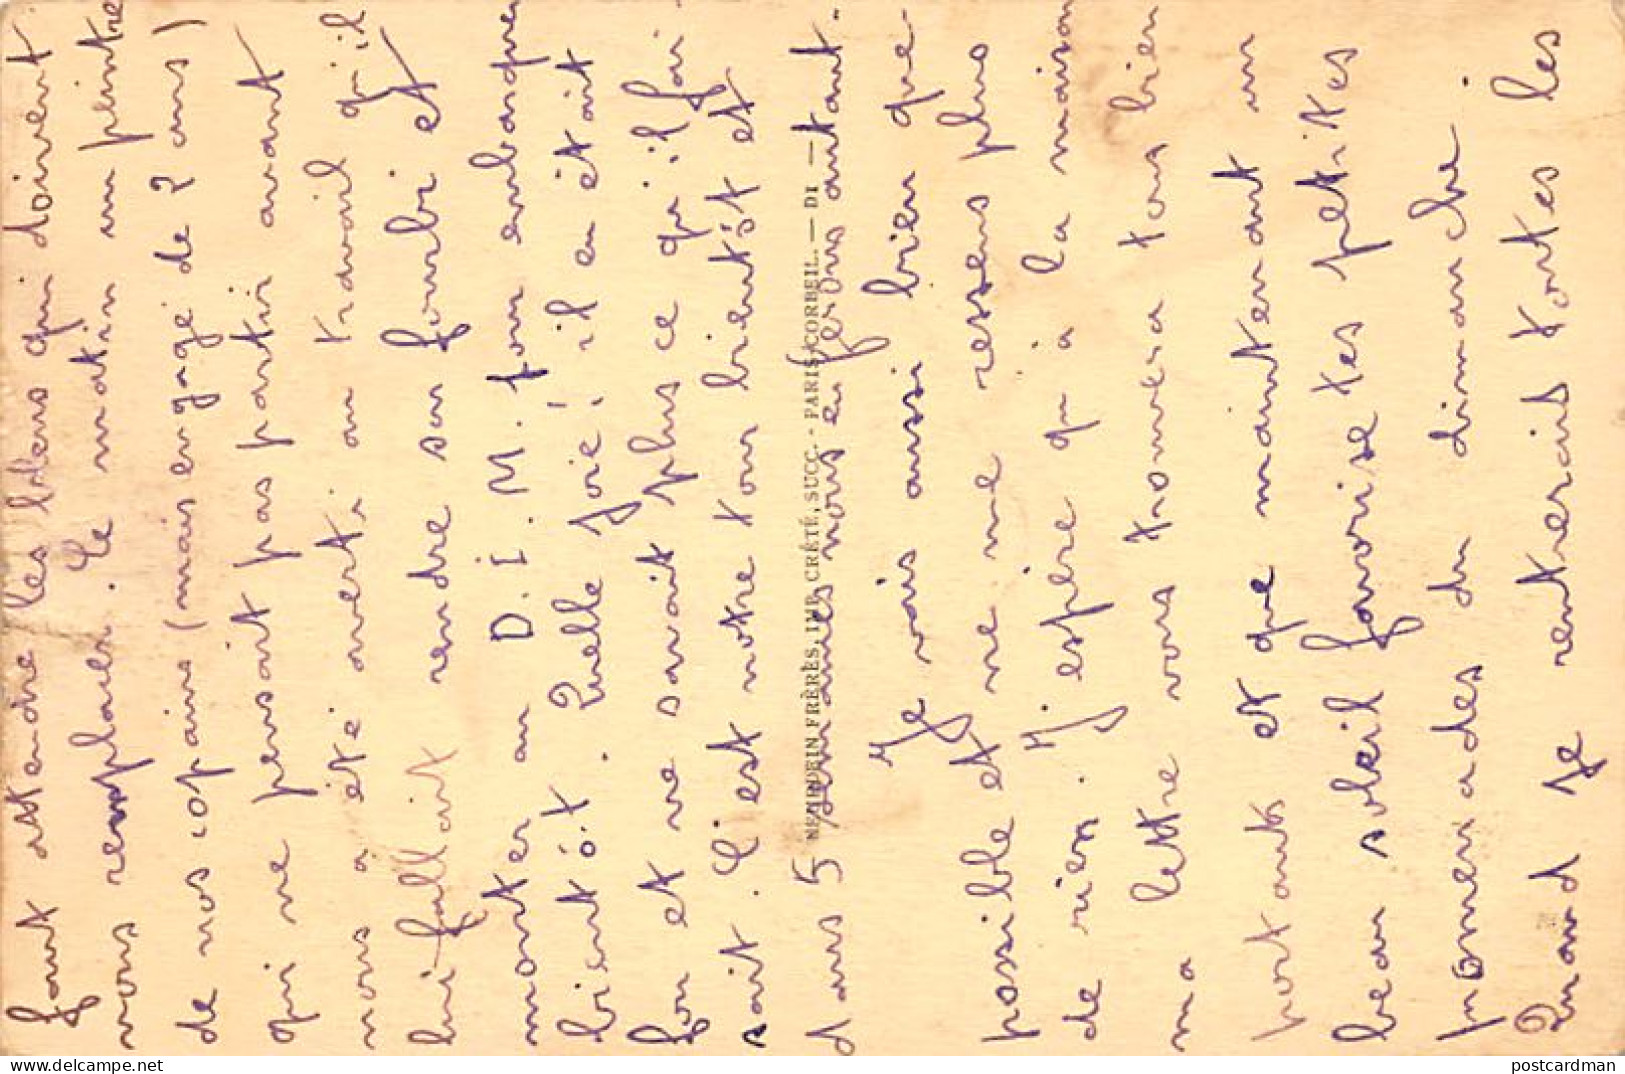 faut attendre les bleus qui doivent
nous remplacer. Ce matin un peintre
de nos copains (mais engagé de 2 ans)
qui ne pensait pas partir avant
nous a été averti au travail qu'il
lui fallait rendre son fourbi et
monter au D.I.M. pour embarquer
bientôt. Quelle joie! il en était
fou et ne savait plus ce qu'il fai-
sait. C'est notre tour bientôt et
dans 5 semaines nous en ferons autant.
NEURDEIN FRÈRES, IMP. CRÉTÉ, SUCC. - PARIS-CORBEIL. — DI —
Je vais aussi bien que
possible et ne me ressens plus
de rien. J'espère qu'à la maison
ma lettre vous trouvera tous bien
portants et que maintenant un
beau soleil favorise tes petites
promenades du dimanche.
Quand je rentrerai toutes les
postcardman